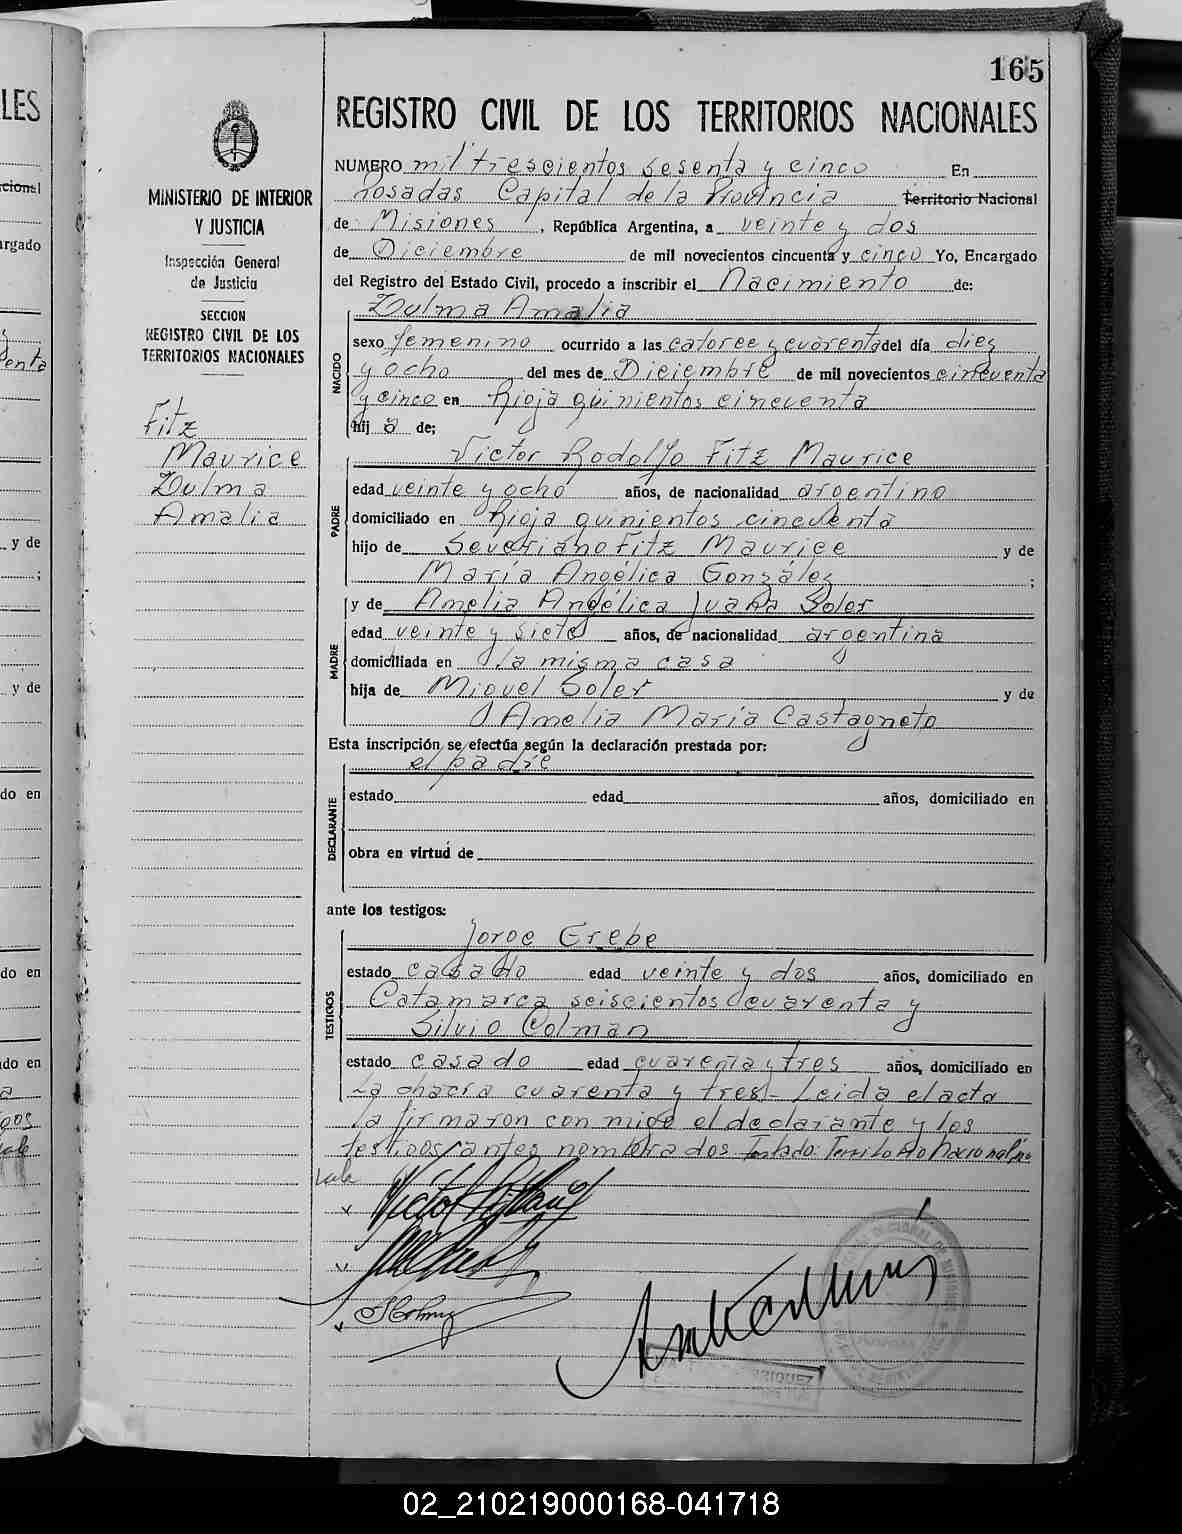 165
LES
REGISTRO CIVIL DE LOS TERRITORIOS NACIONALES
MINISTERIO DE INTERIOR
Y JUSTICIA
Inspección General
de Justicia
SECCION
REGISTRO CIVIL DE LOS
TERRITORIOS NACIONALES
Fitz
Maurice
Zulma
Amalia
NUMERO mil trescientos sesenta y cinco En
Posadas Capital de la Provincia Territorio Nacional
de Misiones, República Argentina, a veinte y dos
de Diciembre de mil novecientos cincuenta y cinco Yo, Encargado
del Registro del Estado Civil, procedo a inscribir el Nacimiento de:
Zulma Amalia
NACIDO
sexo femenino ocurrido a las catorce y cuarenta del día diez
y ocho del mes de Diciembre de mil novecientos cincuenta
y cinco en Rioja quinientos cincuenta
hij a de;
Victor Rodolfo Fitz Maurice
PADRE
edad veinte y ocho años, de nacionalidad argentino
domiciliado en Rioja quinientos cincuenta
hijo de Severiano Fitz Maurice y de
María Angélica González ;
y de Amelia Angélica Juana Soler
MADRE
edad veinte y siete años, de nacionalidad argentina
domiciliada en la misma casa
hija de Miguel Soler y de
Amelia María Castagneto
Esta inscripción se efectúa según la declaración prestada por:
el padre
DECLARANTE
estado edad años, domiciliado en
obra en virtud de
ante los testigos:
Jorge Grebe
TESTIGOS
estado casado edad veinte y dos años, domiciliado en
Catamarca seiscientos cuarenta y
Silvio Colman
estado casado edad cuarenta y tres años, domiciliado en
La chacra cuarenta y tres - Leida el acta
la firmaron con migo el declarante y los
testigos antes nombrados Testado: Territorio Nacional no
vale
02_210219000168-041718